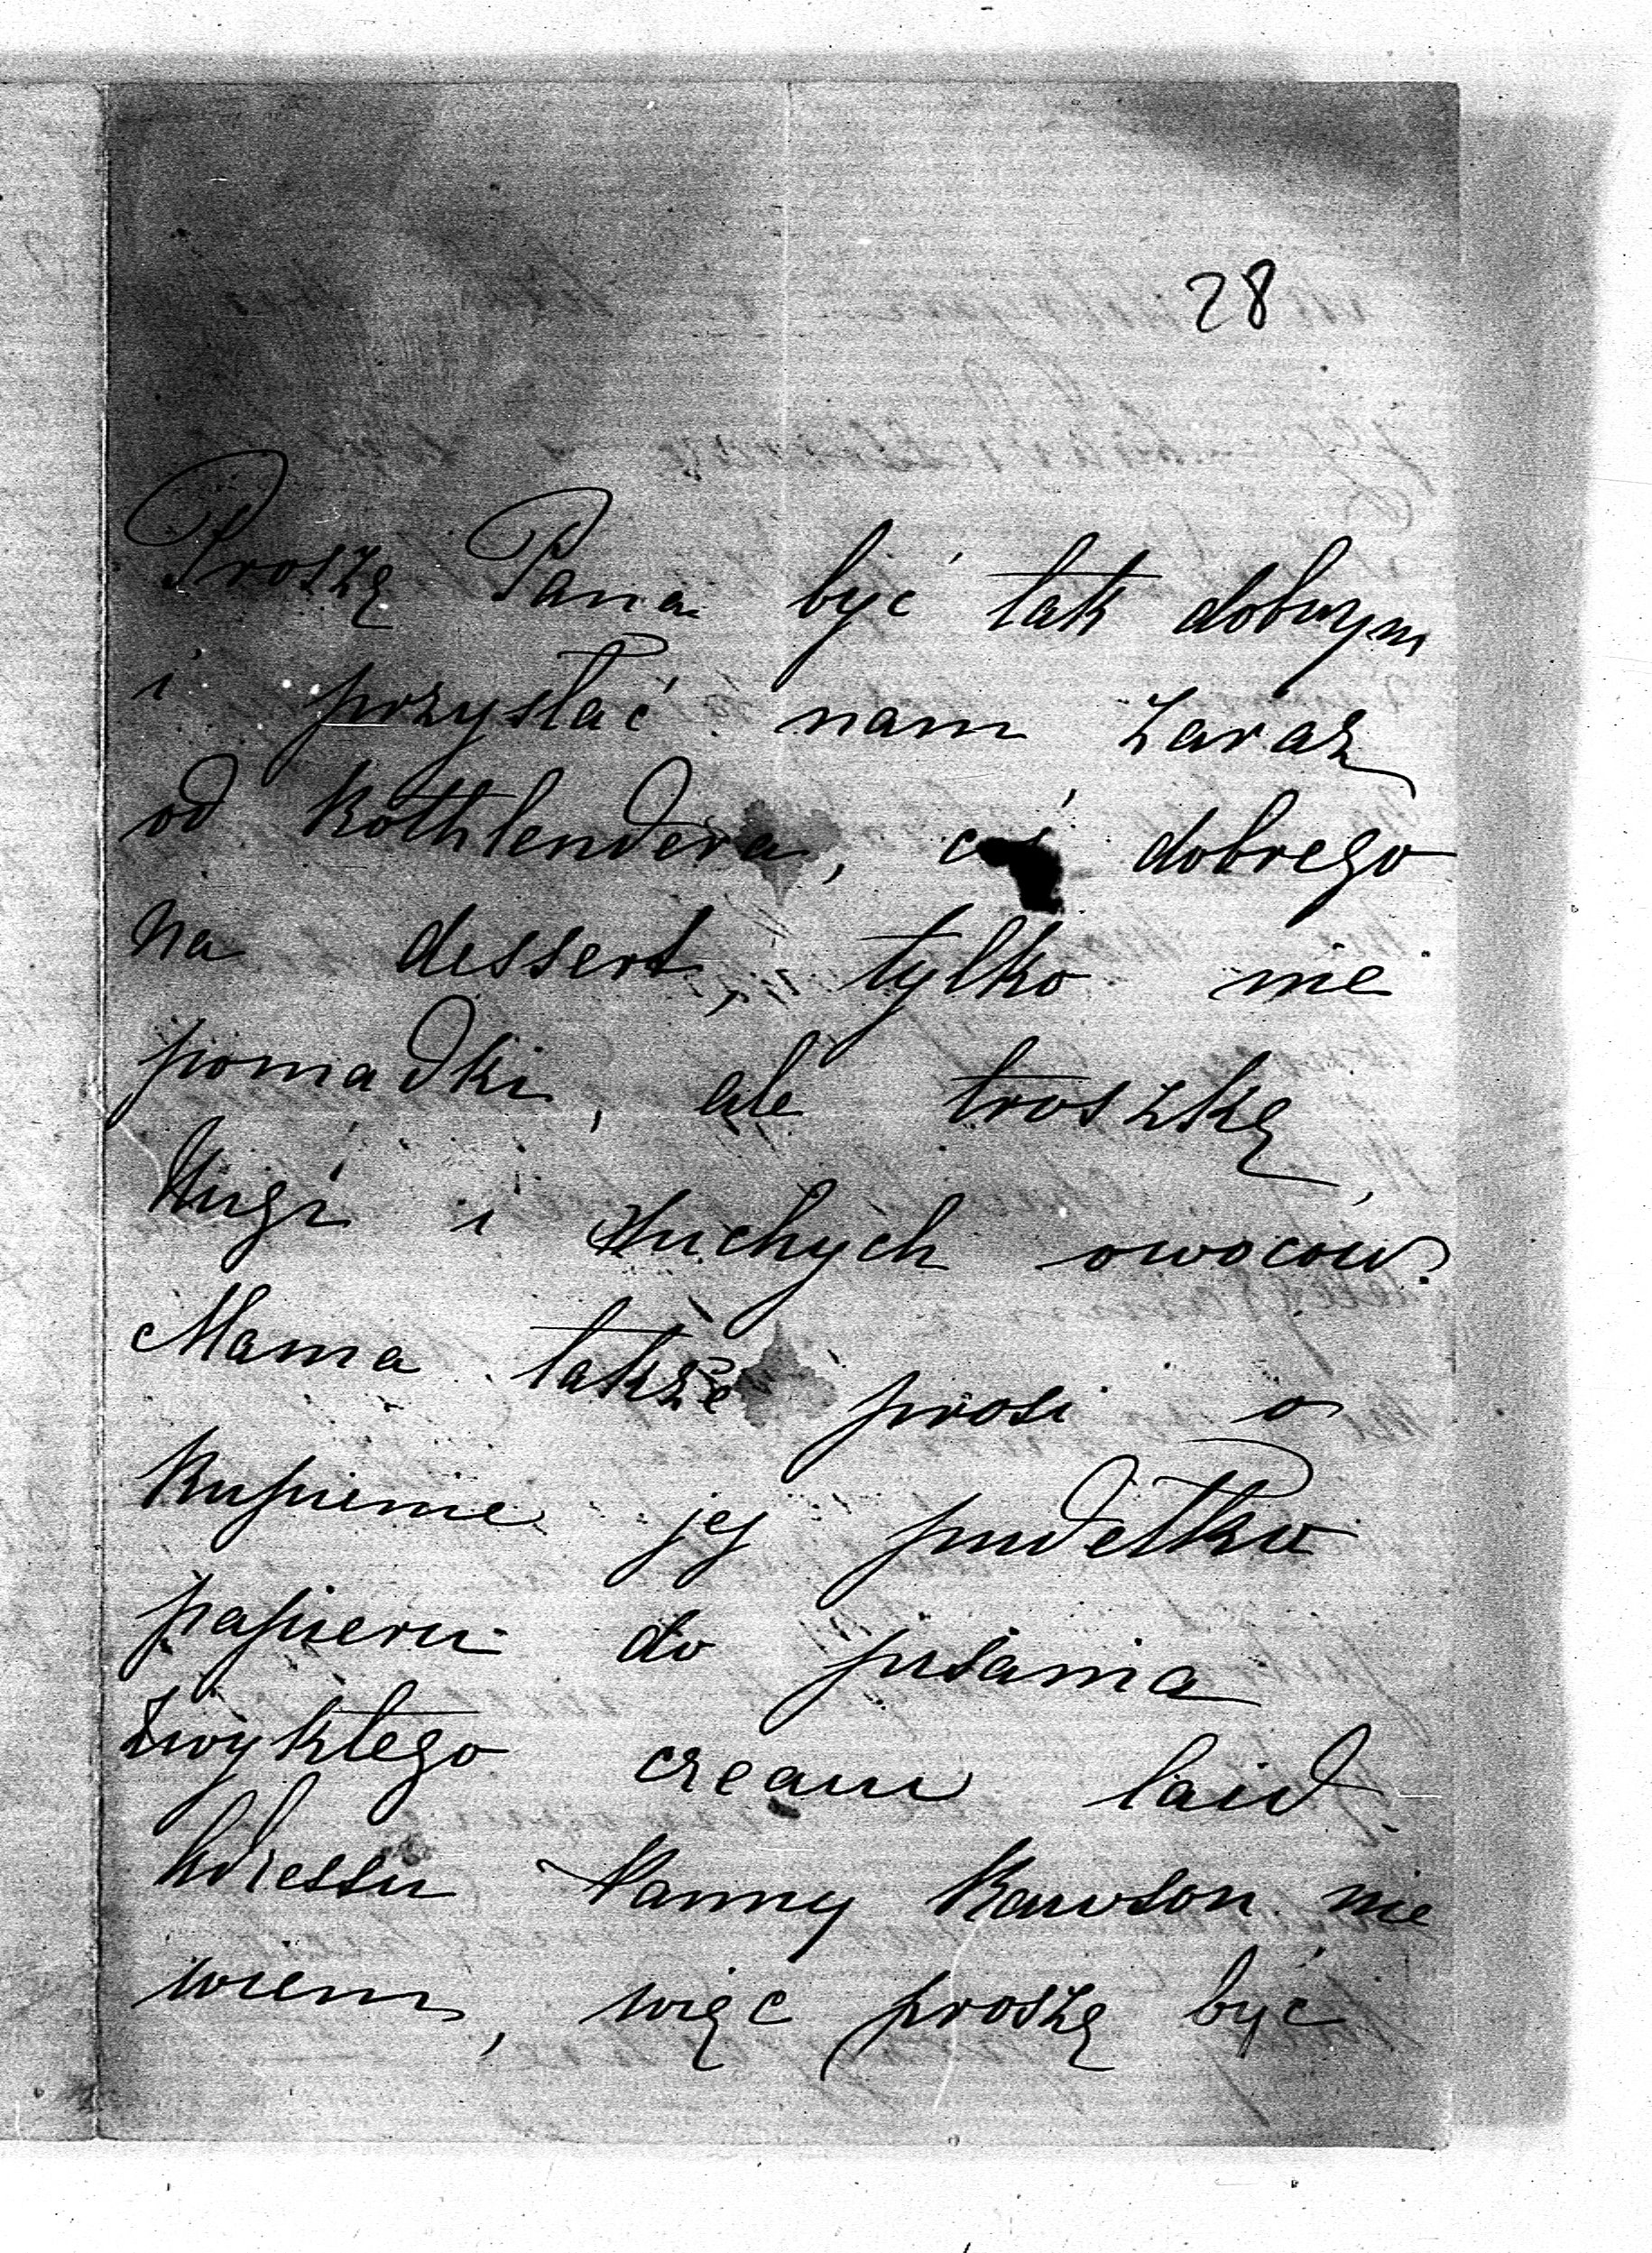 28
Proszę Pana być tak dobrym
i przysłać nam zaraz
od Kothlendera, coś dobrego
na dessert, tylko nie
pomadki, ale troszkę
i suchych owoców.
Mama także prosi o
kupienie jej pudełka
papieru do pisania
zwykłego cream laid.
Adressu Panny Rawson nie
wiem, więc proszę być